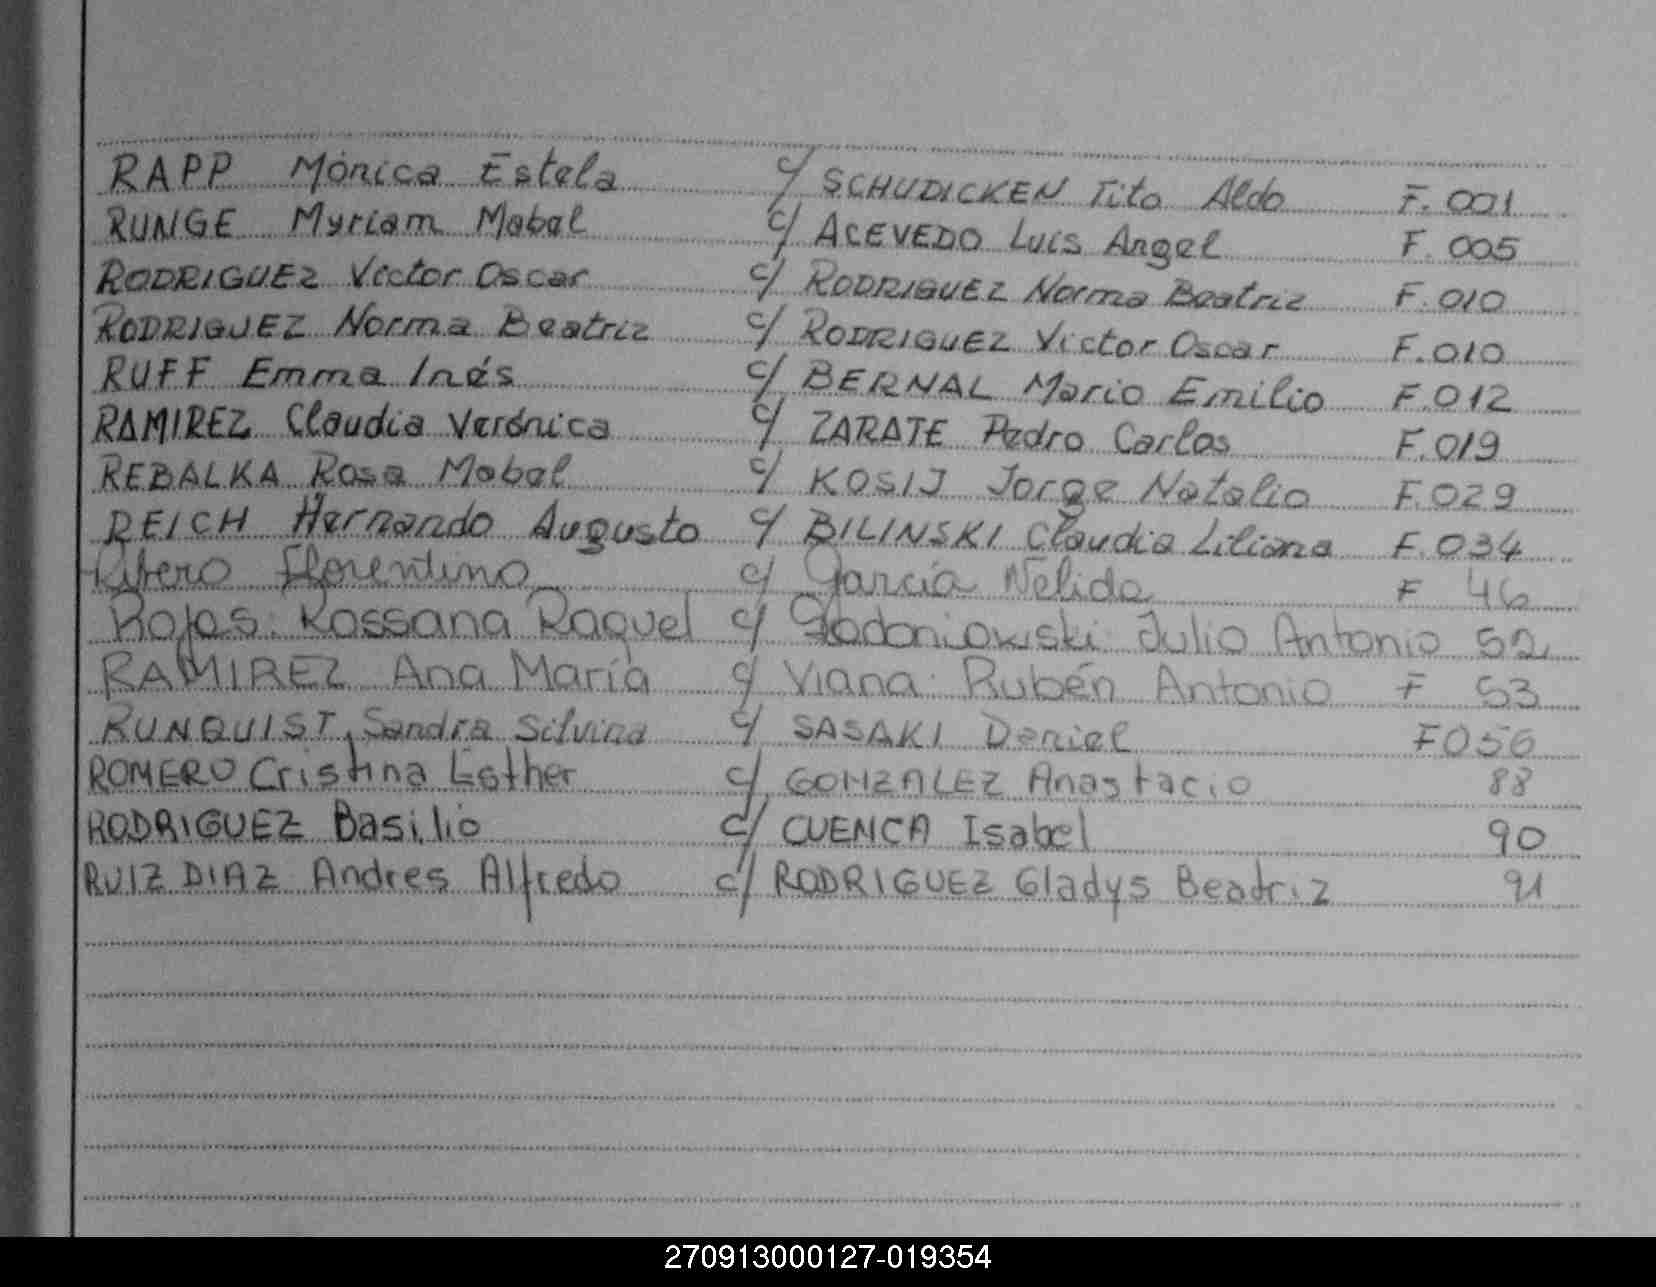 RAPP Mónica Estela c/ SCHUDICKEN Tito Aldo F. 001
RUNGE Myriam Mabel c/ ACEVEDO Luis Angel F. 005
RODRIGUEZ Victor Oscar c/ RODRIGUEZ Norma Beatriz F.010
RODRIGUEZ Norma Beatriz c/ RODRIGUEZ Victor Oscar F.010
RUFF Emma Inés c/ BERNAL Mario Emilio F.012
RAMIREZ Claudia Verónica c/ ZARATE Pedro Carlos F.019
REBALKA Rosa Mabel c/ KOSIJ Jorge Natalio F.029
REICH Hernando Augusto c/ BILINSKI Claudia Liliana F.034
Ribero Florentino c/ García Nelida F 46
Rojas Rossana Raquel c/ Julio Antonio 52
RAMIREZ Ana María c/ Viana Rubén Antonio F 53
RUNQUIST, Sandra Silvina c/ SASAKI Daniel F056
ROMERO Cristina Esther c/ GONZALEZ Anastacio 88
RODRIGUEZ Basilio c/ CUENCA Isabel 90
RUIZ DIAZ Andres Alfredo c/ RODRIGUEZ Gladys Beatriz 91
270913000127-019354